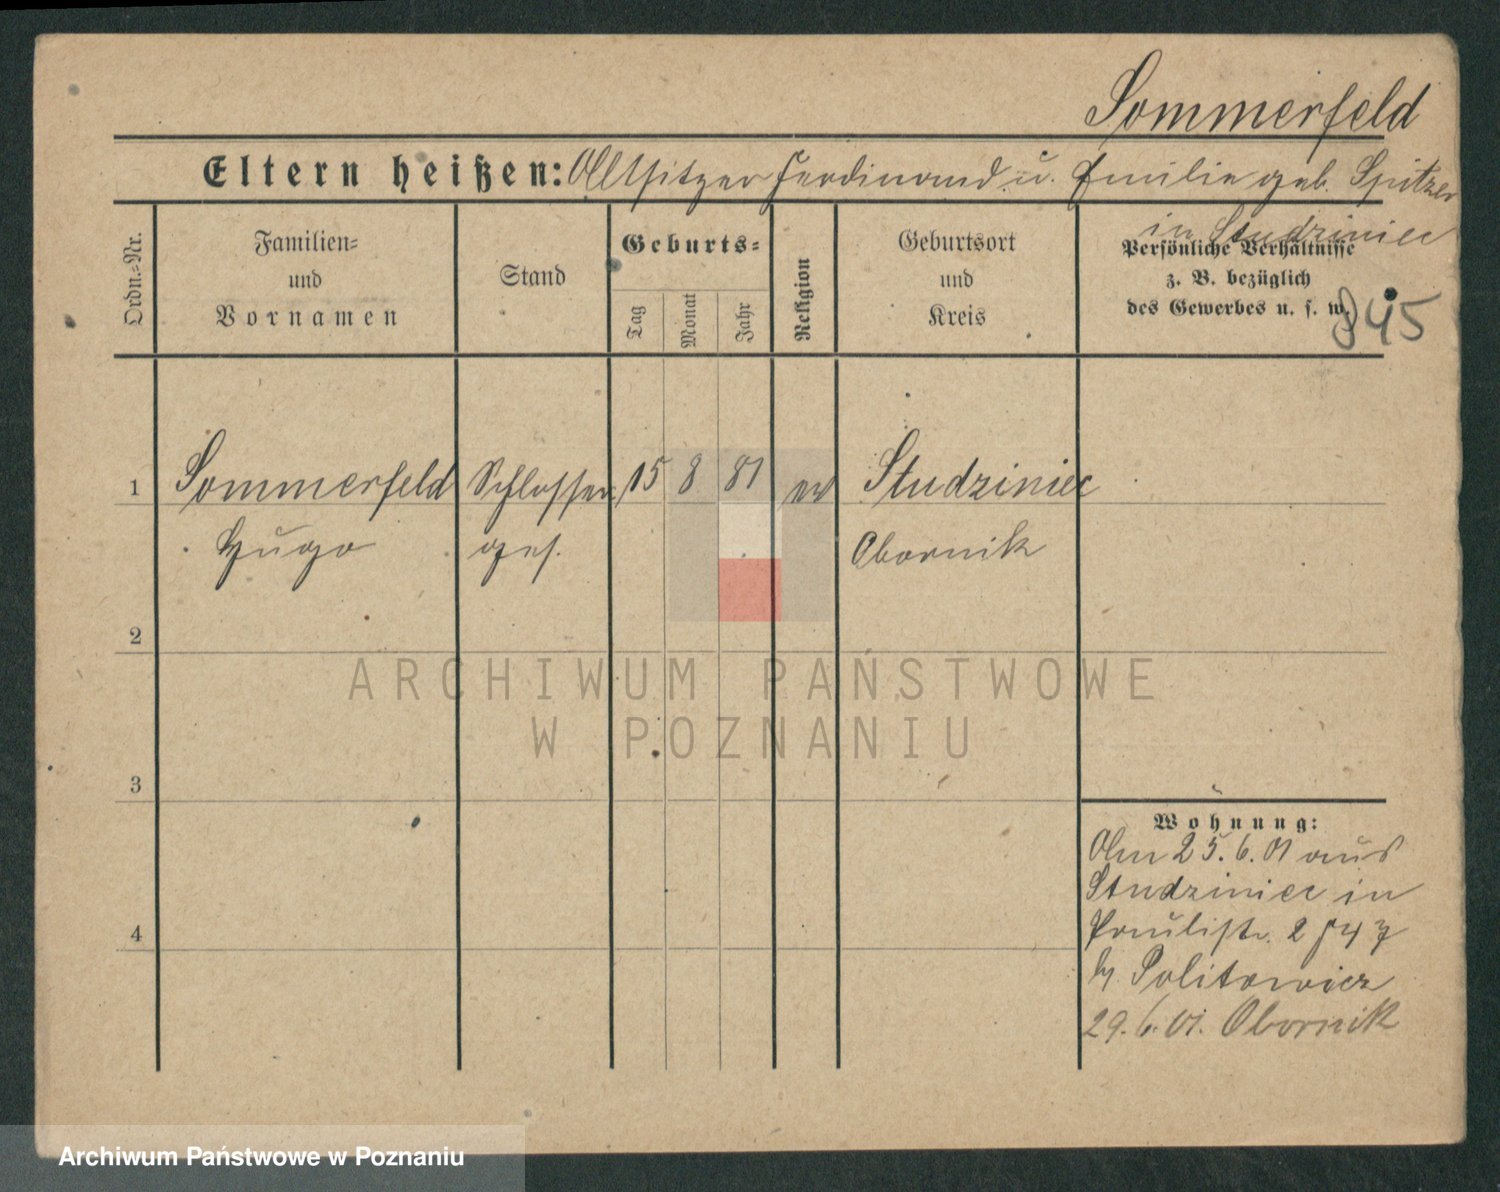 Sommerfeld
Eltern heißen: Altsitzer Ferdinand u. Emilie geb. Spitzer
in Studziniec
Ordn.=Nr.
Familien=
und
Vornamen
Stand
Geburts=
Tag
Monat
Jahr
Religion
Geburtsort
und
Kreis
Persönliche Verhältnisse
z. B. bezüglich
des Gewerbes u. s. w.
845
1 Sommerfeld Schlosser 15 8 81 ev Studziniec
Hugo ges. Obornik
2
3
4
Wohnung:
Am 25.6.01 aus
Studziniec in
Paulistr. 2
b/ Politowicz
29.6.01. Obornik
ARCHIWUM PAŃSTWOWE
W POZNANIU
Archiwum Państwowe w Poznaniu